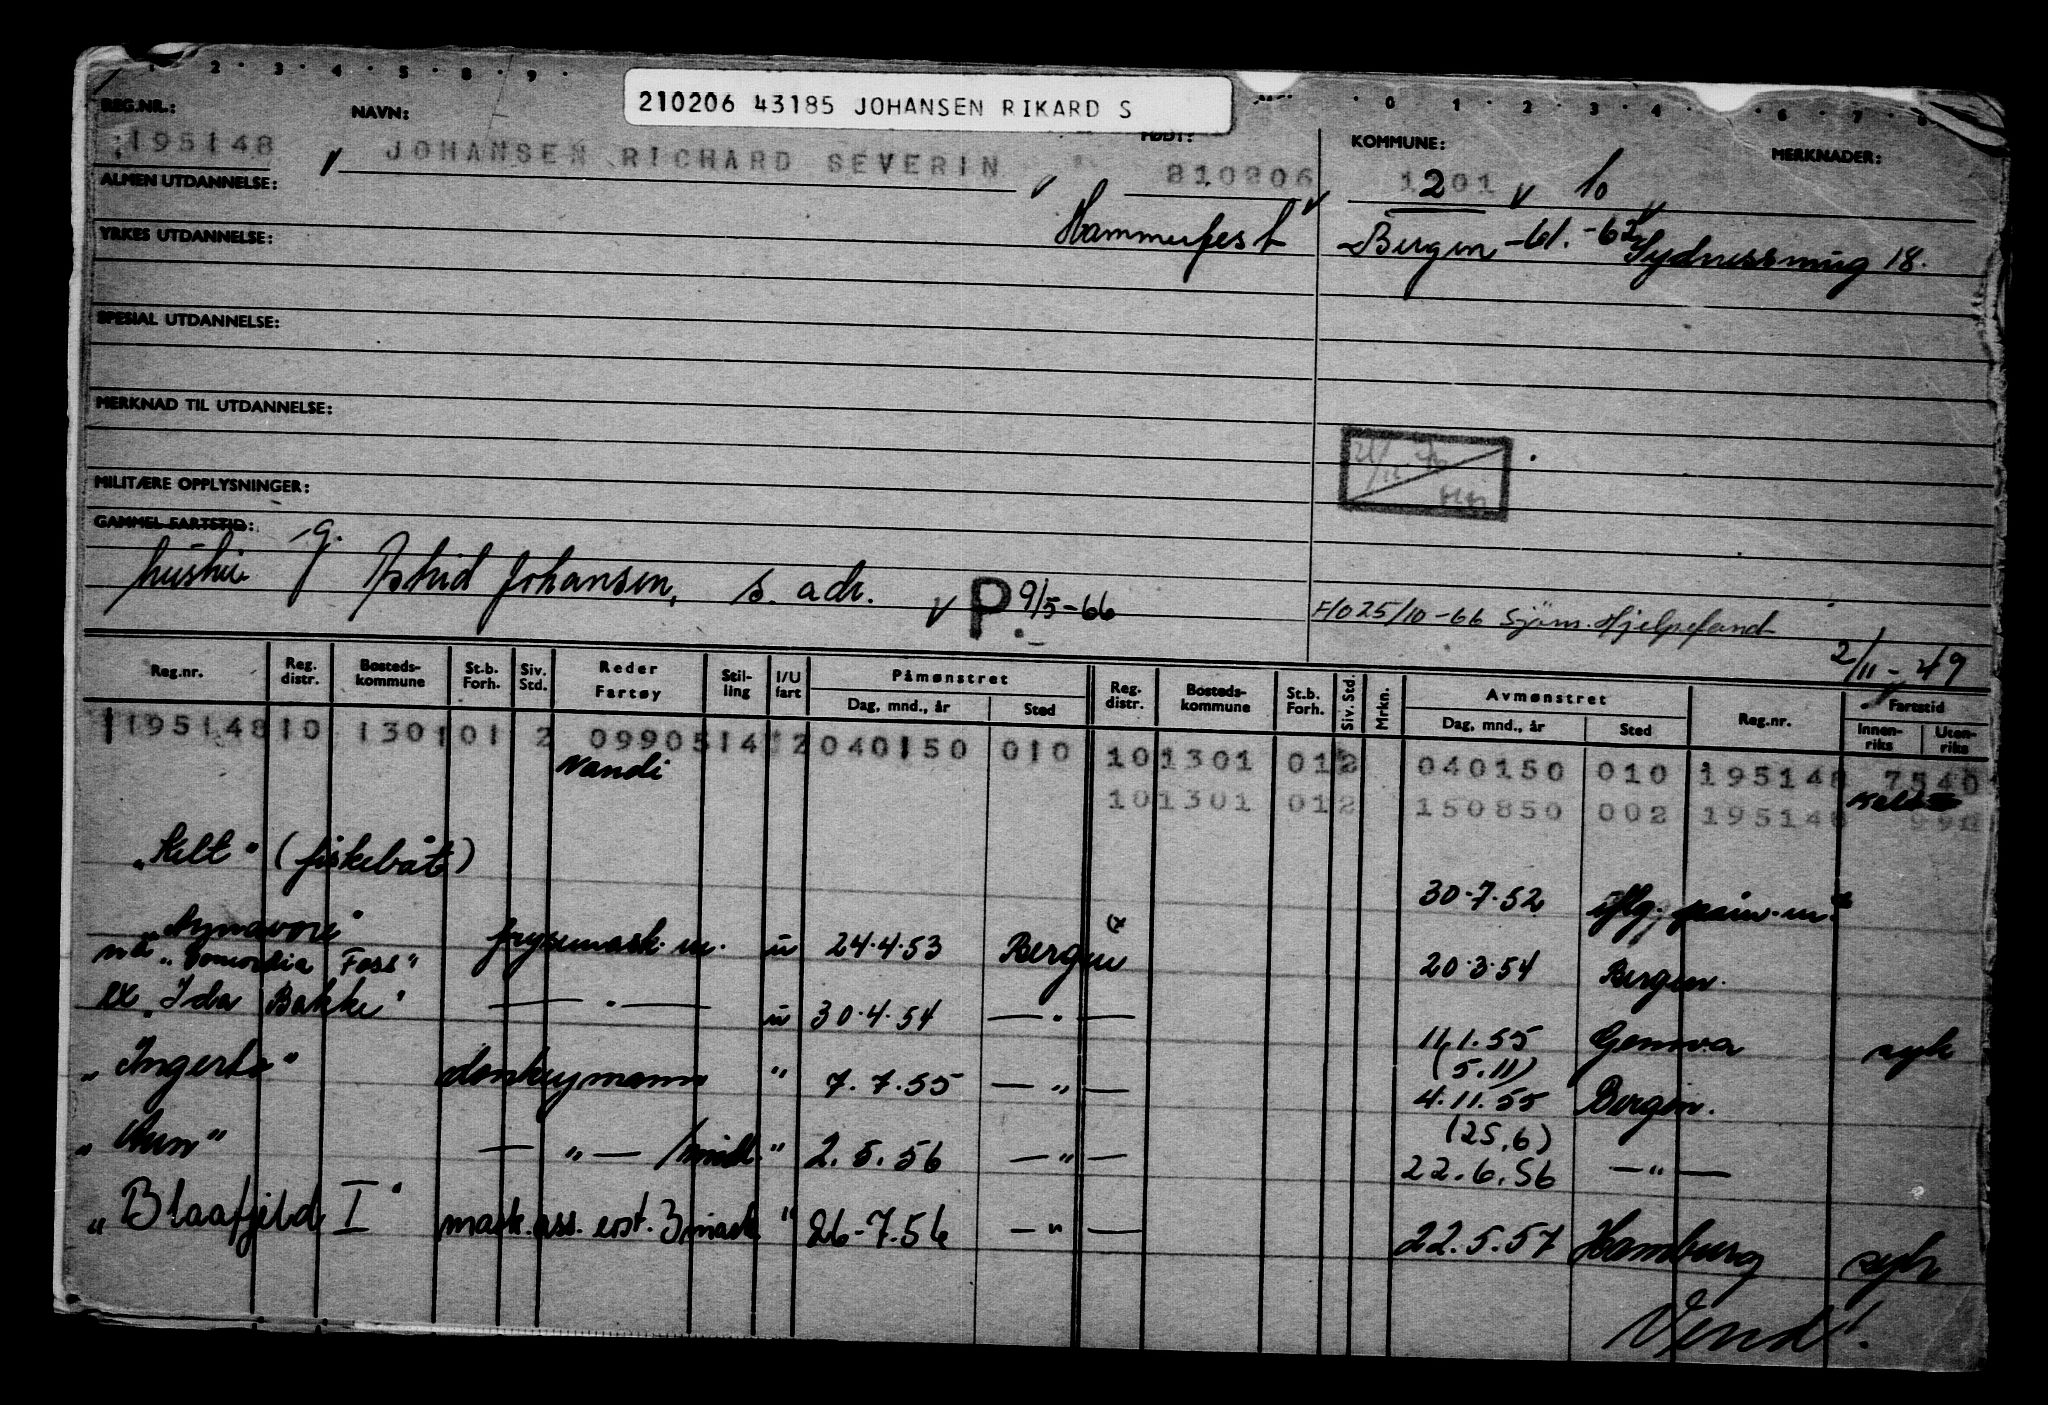 1 · 2 · 3 · 4 · 5 · 8 · 9 · · 0 · 1 · 2 · 3 · 4 · 6 · 7 · 8
210206 43185 JOHANSEN RIKARD S
REG.NR.: NAVN: FØDT: KOMMUNE: MERKNADER:
195148 JOHANSEN RICHARD SEVERIN 210206 1201 10
ALMEN UTDANNELSE:
Hammerfest Bergen -61. Sydnessmug 18.
YRKES UTDANNELSE:
SPESIAL UTDANNELSE:
MERKNAD TIL UTDANNELSE:
MILITÆRE OPPLYSNINGER:
GAMMEL FARTSTID:
g.
hustru Astrid Johansen, s. adr. P 9/5-66
F/O 25/10-66 Sjøm. Hjelpefond
2/11-49
Reg.nr. Reg. distr. Bosteds-kommune St.b. Forh. Siv. Std. Reder Fartøy Stil-ling I/U fart Påmønstret Dag, mnd., år Sted Reg. distr. Bosteds-kommune St.b. Forh. Siv. Std. Mrkn. Avmønstret Dag, mnd., år Sted Reg.nr. Fartstid Innen-riks Uten-riks
195148 10 1301 01 2 09905 14 2 040150 010 10 1301 01 2 040150 010 195148 7540
Nandi
10 1301 01 2 150850 002 195148
"Kelt" (fiskebåt)
30.7.52
frysemask.m. u 24.4.53 Bergen (x 20.3.54 Bergen.
nå "Concordia Foss"
ex "Ida Bakke" — " — u 30.4.54 — " — 11.1.55 Genova syk
(5.11)
"Ingerto" donkeymann " 7.7.55 — " — 4.11.55 Bergen.
(25.6)
"Aun" — " — " 2.5.56 — " — 22.6.56 — " —
"Blaafjeld I" mask.ass. erst. 3 mask " 26-7.56 — " — 22.5.57 Hamburg syk
Vend!